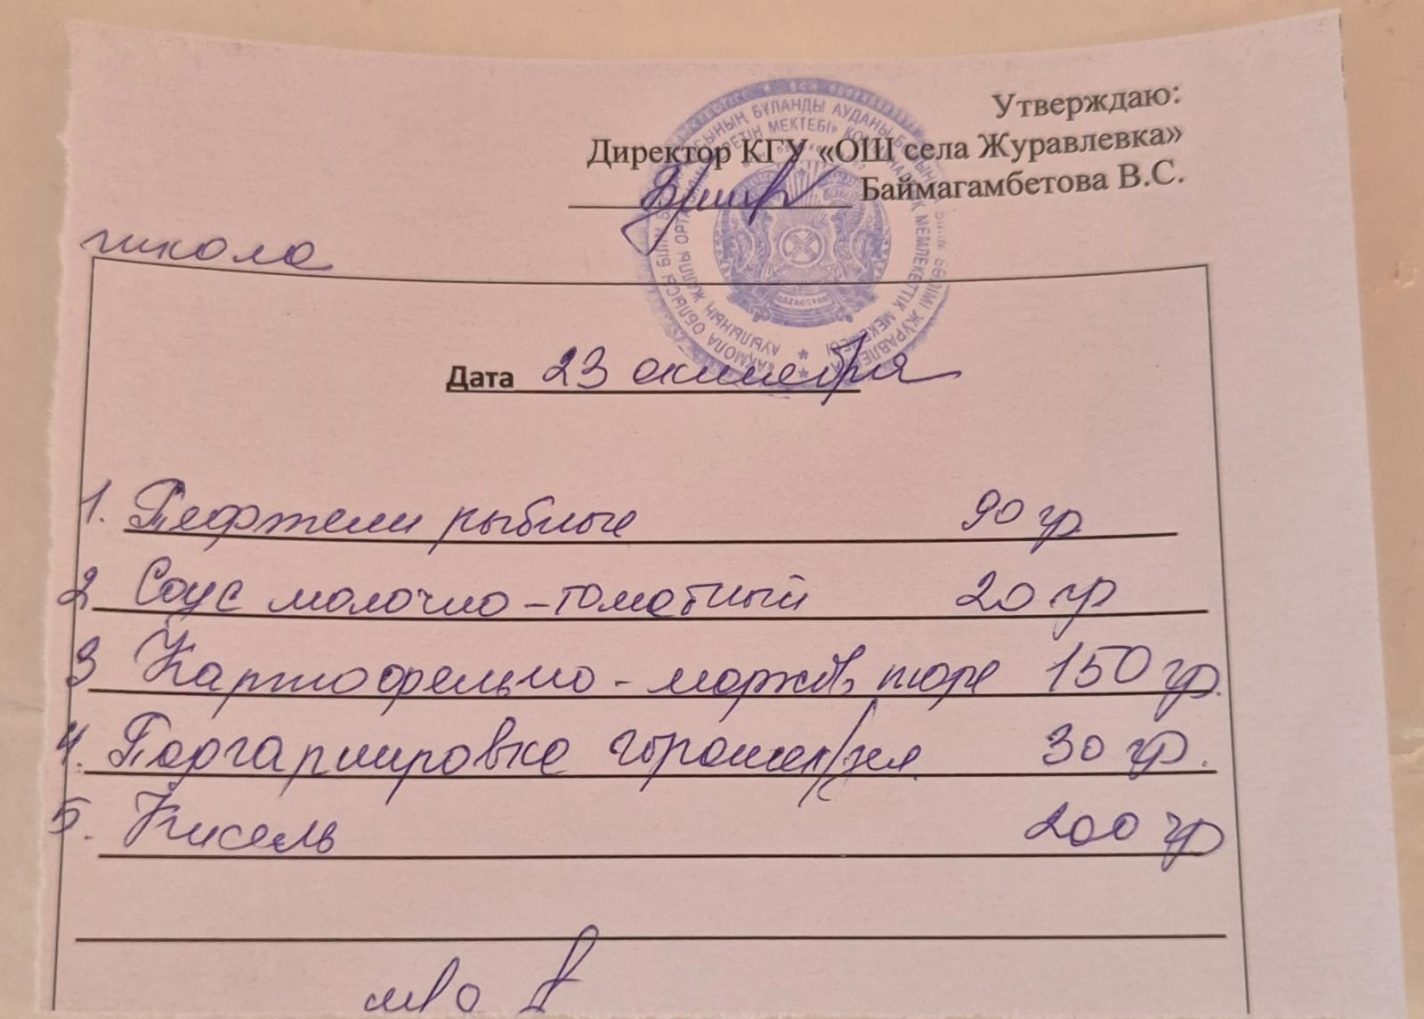 Утверждаю:
Директор КГУ «ОШ села Журавлевка»
Баймагамбетова В.С.
школа
Дата 23 октября
1. Тефтели рыбные 90 гр
2 Соус молочно-томатный 20 гр
3 Картофельно-морков пюре 150 гр.
4. Подгарнировка 30 гр.
5. Кисель 200 гр